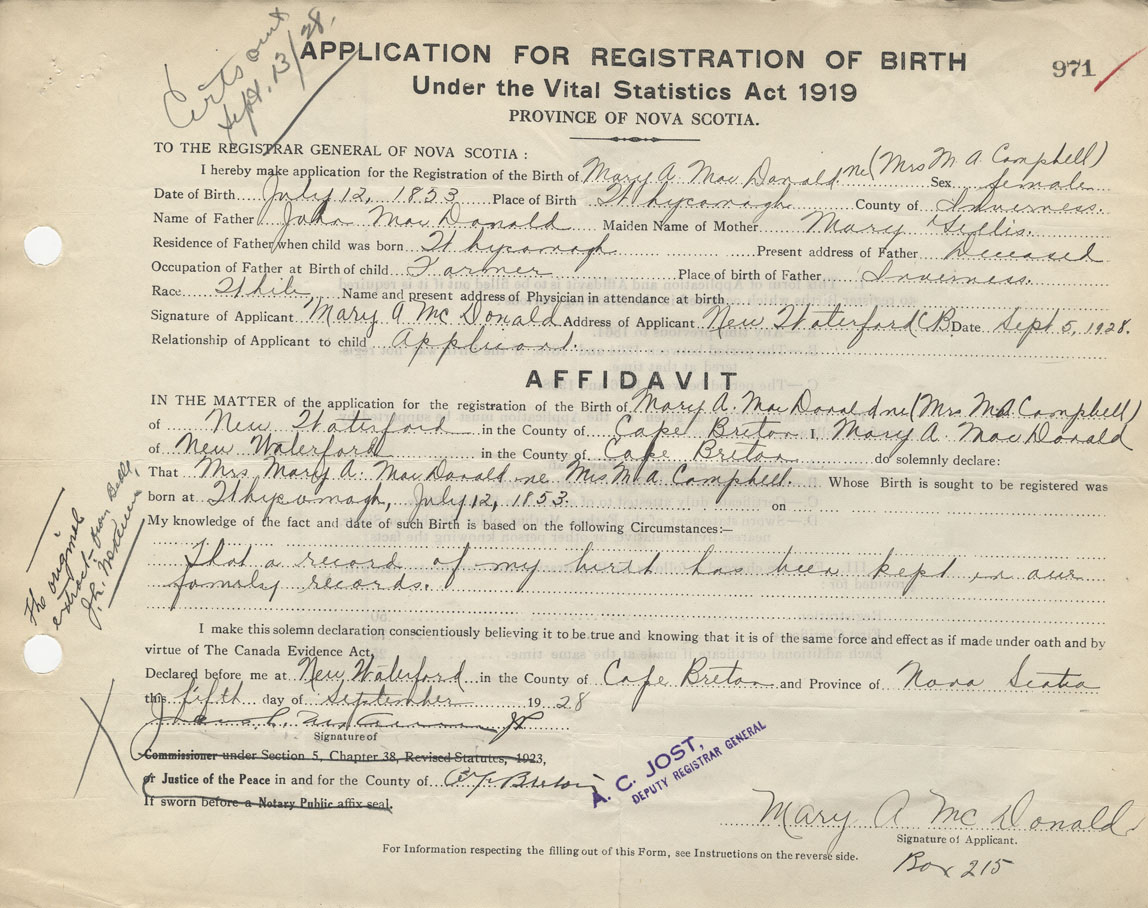 Certs out
Sept. 13/28.
APPLICATION FOR REGISTRATION OF BIRTH
971
Under the Vital Statistics Act 1919
PROVINCE OF NOVA SCOTIA.
TO THE REGISTRAR GENERAL OF NOVA SCOTIA :
I hereby make application for the Registration of the Birth of Mary A. Mac Donald ne (Mrs M. A. Campbell) Sex female
Date of Birth July 12, 1853 Place of Birth Whycomagh County of Inverness.
Name of Father John Mac Donald Maiden Name of Mother Mary Gillis.
Residence of Father when child was born Whycomagh Present address of Father Deceased
Occupation of Father at Birth of child Farmer Place of birth of Father Inverness.
Race White Name and present address of Physician in attendance at birth
Signature of Applicant Mary A Mc Donald Address of Applicant New Waterford C.B. Date Sept 5, 1928.
Relationship of Applicant to child Applicant.
AFFIDAVIT
IN THE MATTER of the application for the registration of the Birth of Mary A. Mac Donald ne (Mrs M A Campbell)
of New Waterford in the County of Cape Breton I, Mary A. Mac Donald
of New Waterford in the County of Cape Breton do solemnly declare:
That Mrs. Mary A. Mac Donald ne Mrs. M. A. Campbell. Whose Birth is sought to be registered was
born at Whycomagh, July 12, 1853. on
My knowledge of the fact and date of such Birth is based on the following Circumstances:—
That a record of my birth has been kept in our
family records.
The original
extract from Bible,
I make this solemn declaration conscientiously believing it to be true and knowing that it is of the same force and effect as if made under oath and by
virtue of The Canada Evidence Act,
Declared before me at New Waterford in the County of Cape Breton and Province of Nova Scotia
this fifth day of September 1928
J P
Signature of
Commissioner under Section 5, Chapter 38, Revised Statutes, 1923,
or Justice of the Peace in and for the County of C. Breton
If sworn before a Notary Public affix seal.
A. C. JOST,
DEPUTY REGISTRAR GENERAL
Mary A Mc Donald
Signature of Applicant.
For Information respecting the filling out of this Form, see Instructions on the reverse side.
Box 215